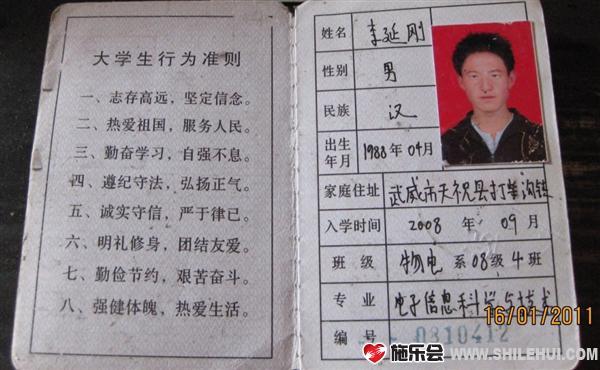 大学生行为准则
一、志存高远，坚定信念。
二、热爱祖国，服务人民。
三、勤奋学习，自强不息。
四、遵纪守法，弘扬正气。
五、诚实守信，严于律己。
六、明礼修身，团结友爱。
七、勤俭节约，艰苦奋斗。
八、强健体魄，热爱生活。
姓名 李延刚
性别 男
民族 汉
出生年月 1988年04月
家庭住址 武威市天祝县打柴沟镇
入学时间 2008 年 09 月
班级 物电 系08级4班
专业 电子信息科学与技术
编号 0810412
16/01/2011
施乐会 WWW.SHILEHUI.COM